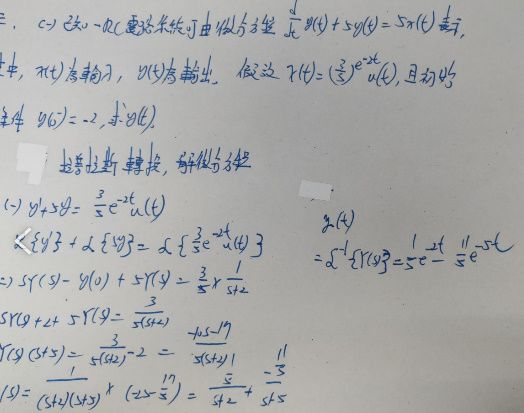 (一) 已知一RC電路系統可由微分方程 d/dt y(t) + 5y(t) = 5x(t) 表示,
其中, x(t)為輸入, y(t)為輸出, 假設 x(t) = (3/5) e^-2t u(t), 且初始
條件 y(0⁻) = -2, 求 y(t).
拉普拉斯轉換, 解微分方程
(一) y' + 5y = 3/5 e^-2t u(t)
ℒ{y'} + ℒ{5y} = ℒ{3/5 e^-2t u(t)}
=> sY(s) - y(0) + 5Y(s) = 3/5 × 1/(s+2)
sY(s) + 2 + 5Y(s) = 3/(5(s+2))
Y(s)(s+5) = 3/(5(s+2)) - 2 = (-10s-17)/(5(s+2))
Y(s) = 1/((s+2)(s+5)) × (-2s - 17/5) = (1/5)/(s+2) + (-11/5)/(s+5)
y(t)
= ℒ^-1{Y(s)} = 1/5 e^-2t - 11/5 e^-5t